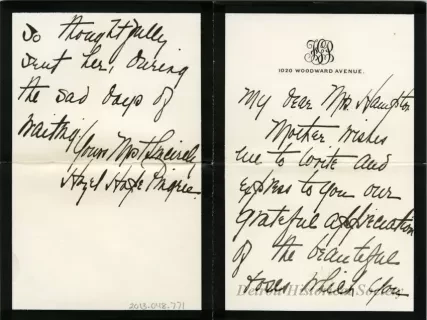 HHP
1020 WOODWARD AVENUE.
My dear Mrs Hampton
Mother wishes
me to write and
express to you our
grateful appreciation
of the beautiful
roses which you
so thoughtfully
sent her, during
the sad days of
waiting.
Yours Most Sincerely
Hazel Hope Pingree.
2013.048.771
Detroit Historical Society